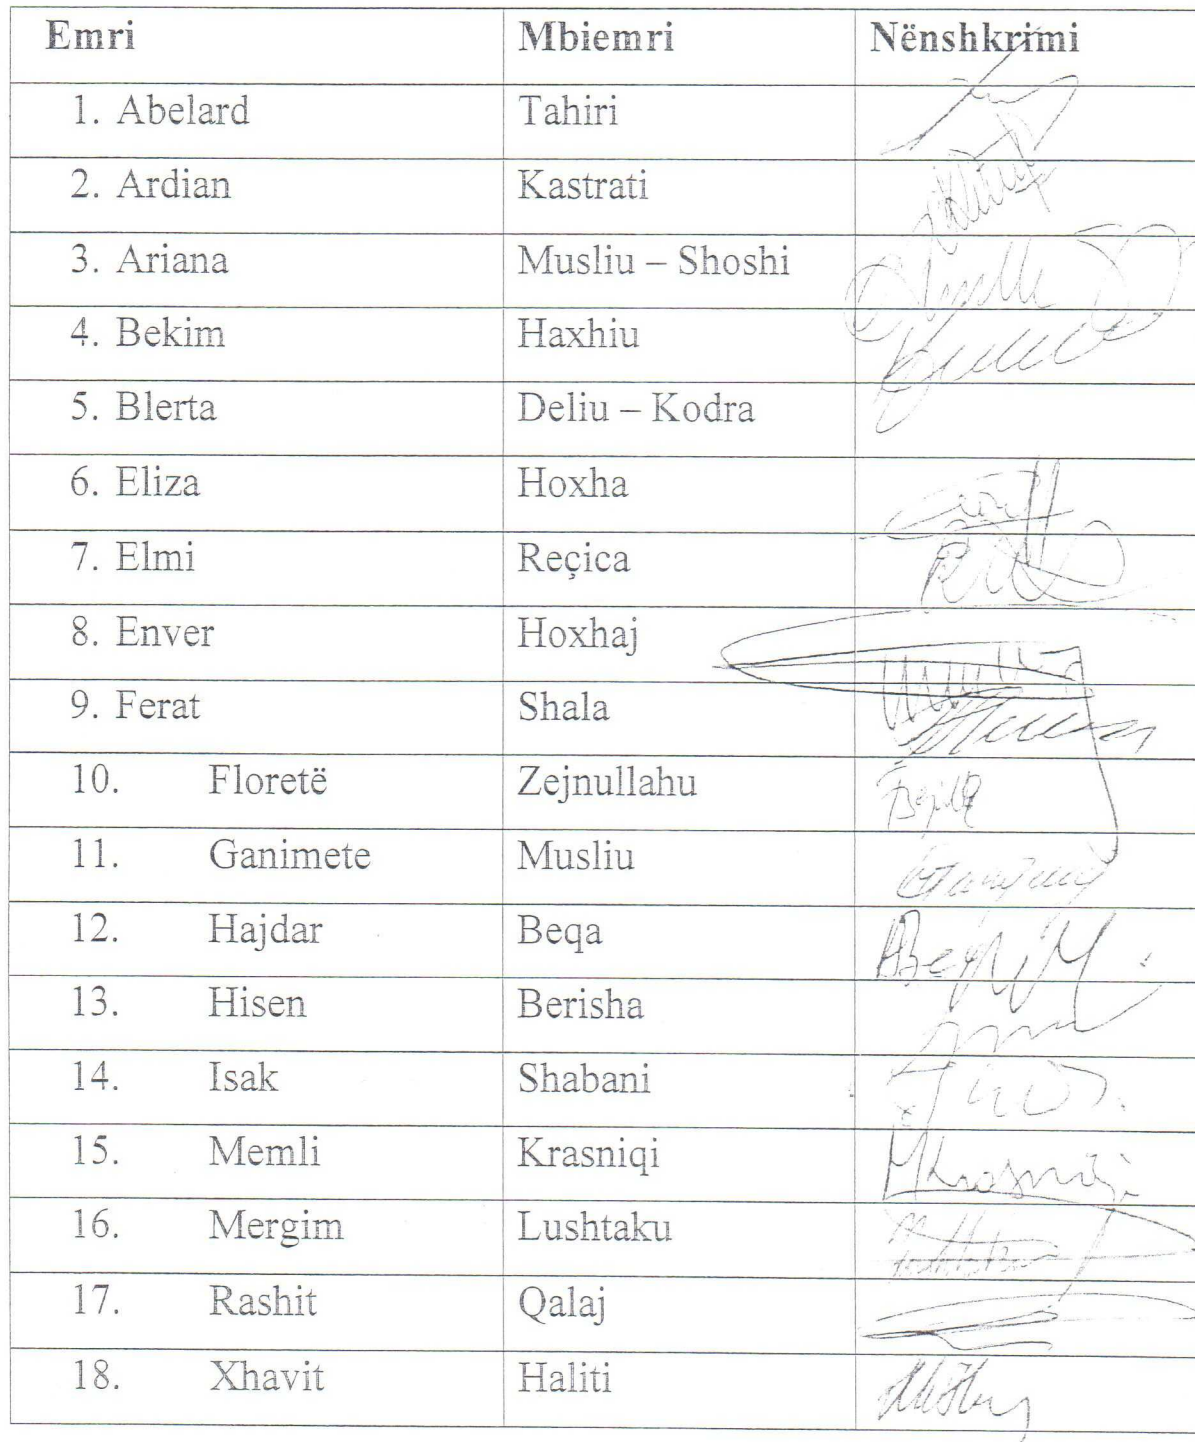 Emri Mbiemri Nënshkrimi
1. Abelard Tahiri
2. Ardian Kastrati
3. Ariana Musliu – Shoshi
4. Bekim Haxhiu
5. Blerta Deliu – Kodra
6. Eliza Hoxha
7. Elmi Reçica
8. Enver Hoxhaj
9. Ferat Shala
10. Floretë Zejnullahu
11. Ganimete Musliu
12. Hajdar Beqa
13. Hisen Berisha
14. Isak Shabani
15. Memli Krasniqi MKrasniqi
16. Mergim Lushtaku
17. Rashit Qalaj
18. Xhavit Haliti